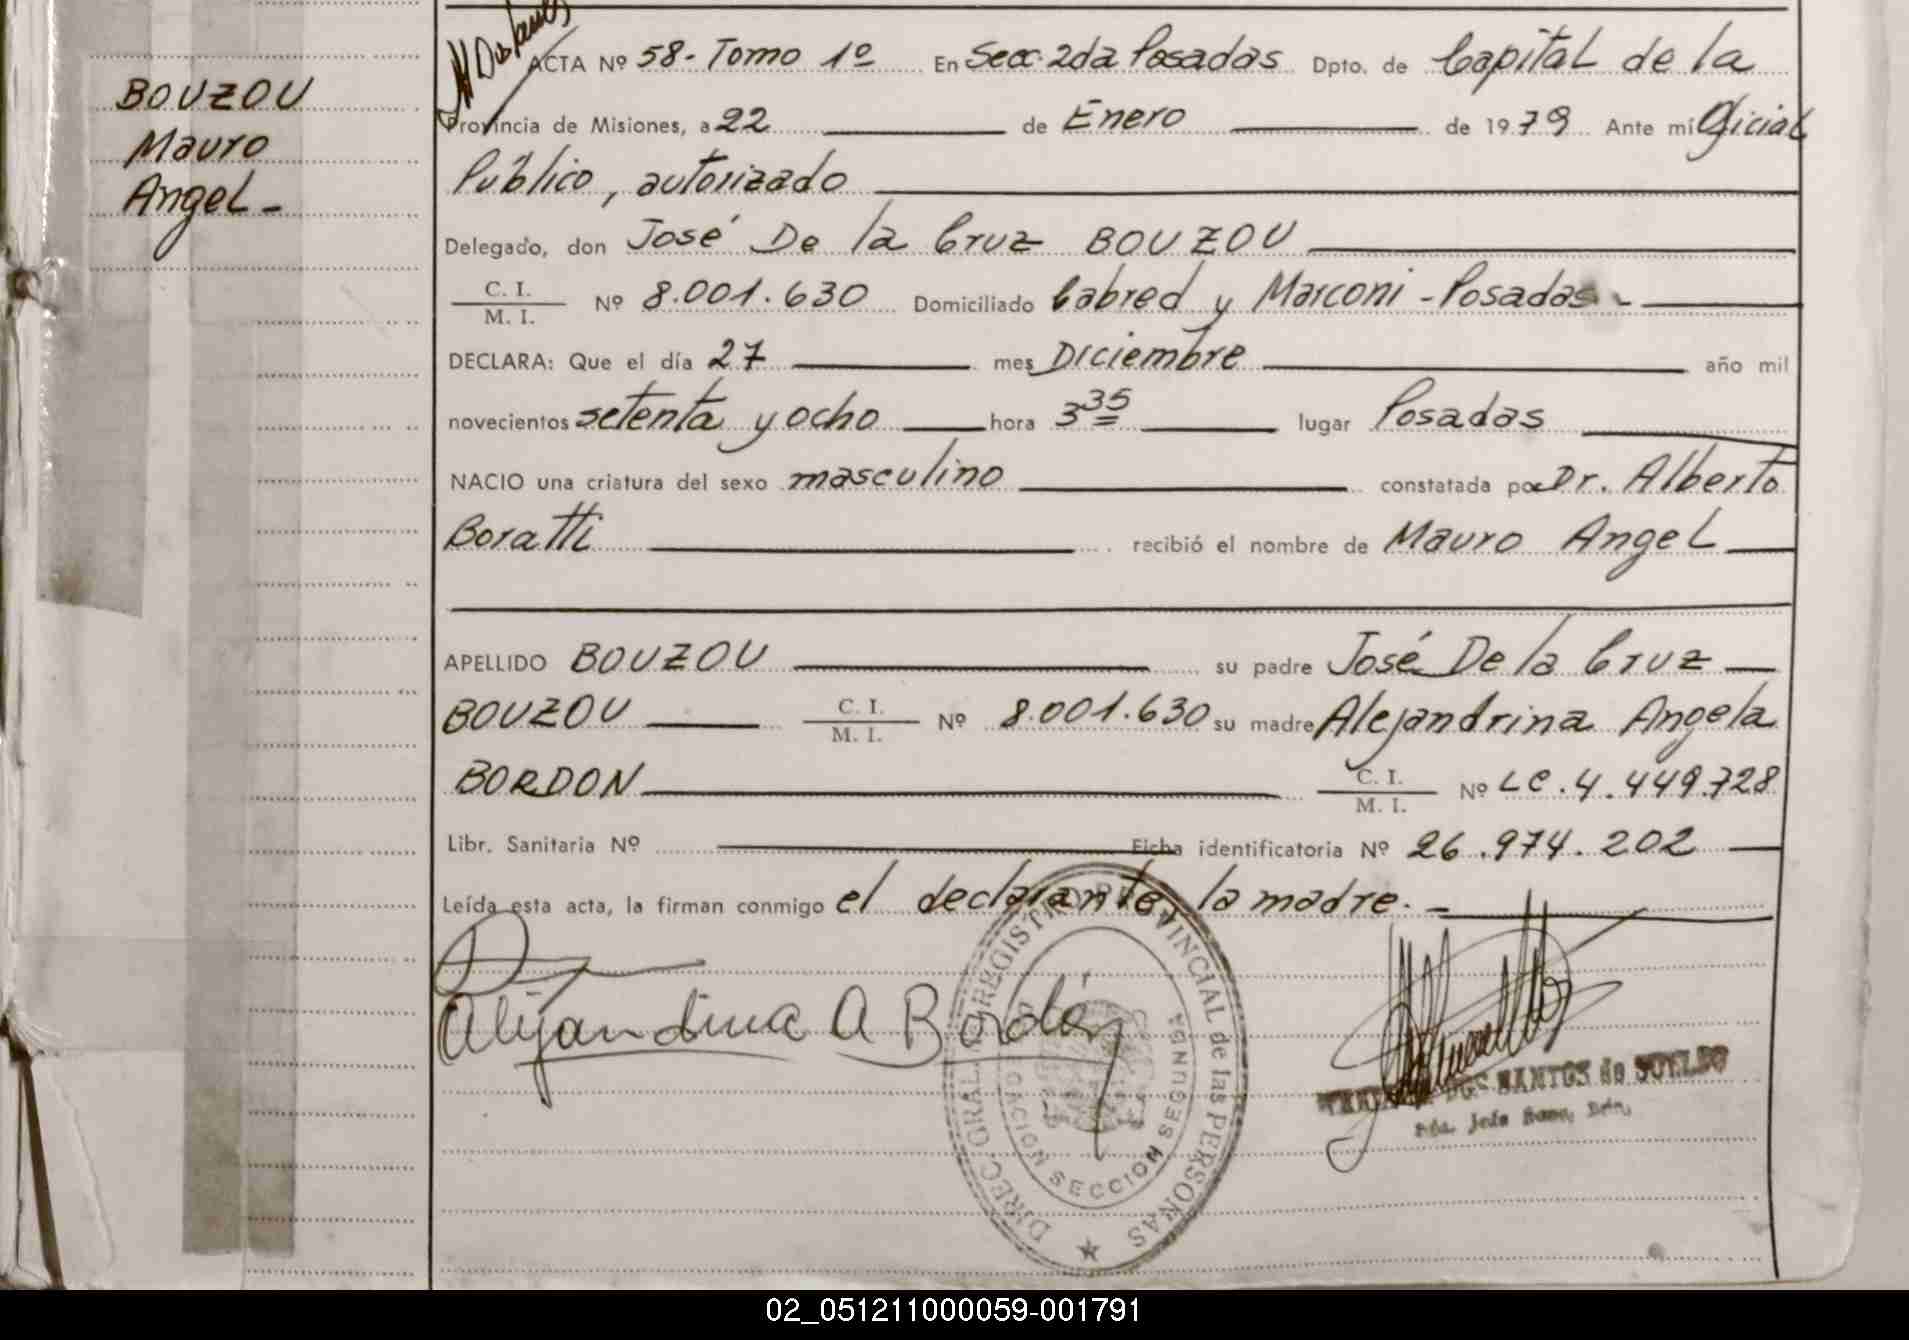 BOUZOU
Mauro
Angel-
ACTA Nº 58- Tomo 1º En Secc. 2da Posadas Dpto. de Capital de la
Provincia de Misiones, a 22 de Enero de 1979 Ante mi Oficial
Público, autorizado
Delegado, don José De la Cruz BOUZOU
C. I.
M. I. Nº 8.001.630 Domiciliado Cabred y Marconi - Posadas -
DECLARA: Que el día 27 mes Diciembre año mil
novecientos setenta y ocho hora 3 35 lugar Posadas
NACIO una criatura del sexo masculino constatada por Dr. Alberto
Boratti recibió el nombre de Mauro Angel
APELLIDO BOUZOU su padre José De la Cruz
BOUZOU C. I.
M. I. Nº 8.001.630 su madre Alejandrina Angela
BORDON C. I.
M. I. Nº LC. 4.449.728
Libr. Sanitaria Nº Ficha identificatoria Nº 26.974.202
Leída esta acta, la firman conmigo el declarante y la madre. -
Alejandrina A Bordón
DIREC. GRAL. REGISTRO PROVINCIAL de las PERSONAS
SECCION SEGUNDA
DOS SANTOS de SUELDO
02_051211000059-001791